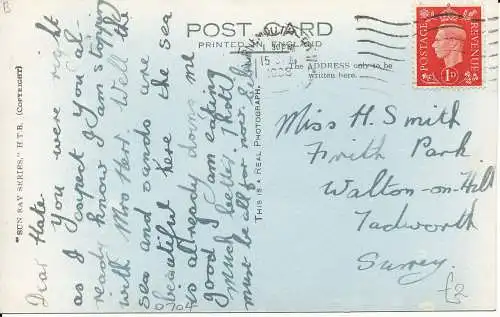 B
POST CARD
PRINTED IN ENGLAND
The ADDRESS only to be
written here.
POSTAGE
REVENUE
1D
15
"SUN RAY SERIES," H.T.B. (COPYRIGHT)
THIS IS A REAL PHOTOGRAPH.
Dear Kate
You were right
as I expect you al-
ready know I am stopping
with Mrs Hart. Well the
sea and sands are
beautiful here the sea
is already doing me
good I am eating
much better. I hold
must be all for now. So
Miss H. Smith
Frith Park
Walton-on-Hill
Tadworth
Surrey.
£2
0704